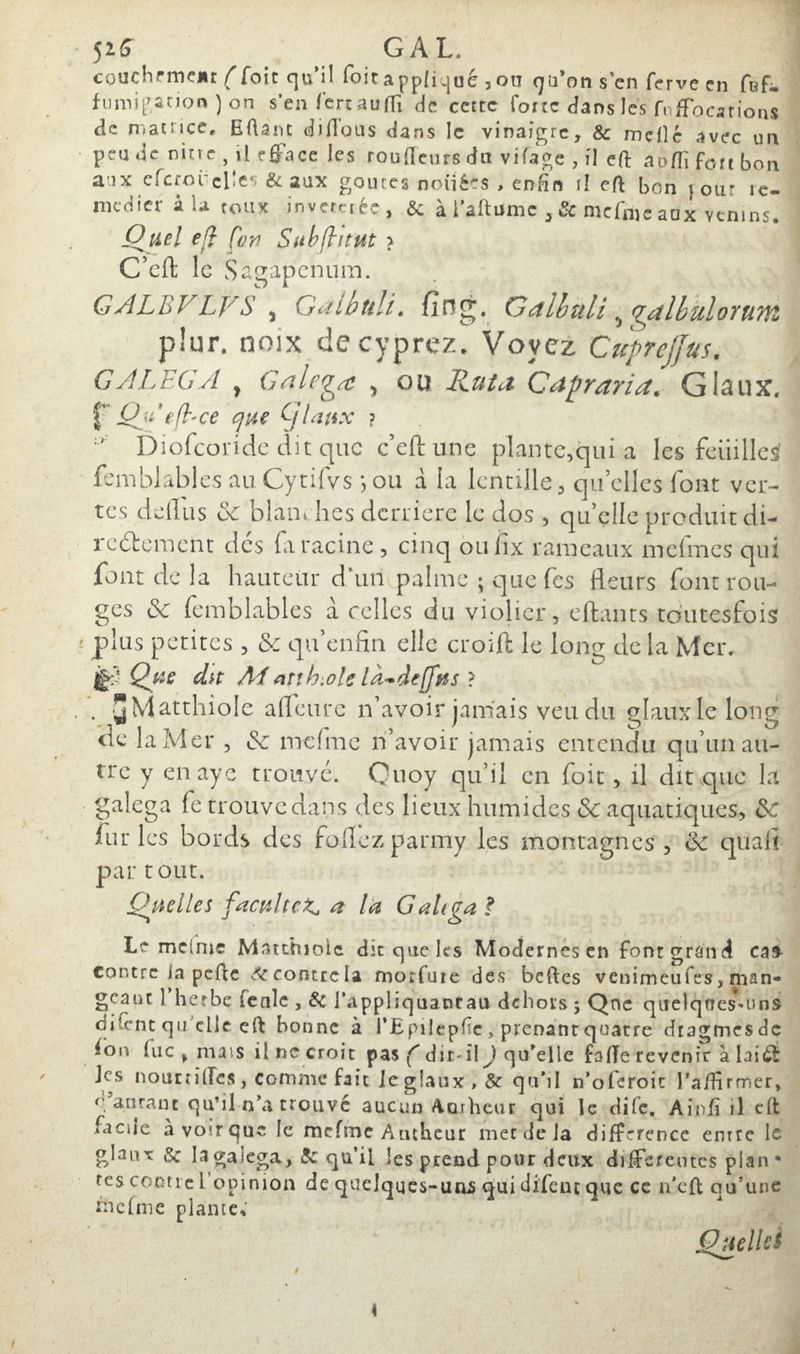 526 GAL.
couchement (ſoit qu'il ſoit appliqué, ou qu'on s'en ſerve en ſuf-
fumigation) on s'en ſert auſſi de cette ſorte dans les ſuffocations
de matrice. Eſtant diſſous dans le vinaigre, & meſlé avec un
peu de nitre, il efface les rouſſeurs du viſage, il eſt auſſi fort bon
aux eſcroüelles & aux goutes noüées, enfin il eſt bon pour re-
medier à la toux inveterée, & à l'aſtume, & meſme aux venins.
Quel eſt ſon Subſtitut ?
C'eſt le Sagapenum.
GALBVLVS, Galbuli. ſing. Galbuli, galbulorum
plur. noix de cyprez. Voyez Cupreſſus.
GALEGA, Galegæ, ou Ruta Capraria. Glaux.
Qu'eſt-ce que Glaux ?
Dioſcoride dit que c'eſt une plante, qui a les feüilles
ſemblables au Cytiſvs ; ou à la lentille, qu'elles ſont ver-
tes deſſus & blanches derriere le dos, qu'elle produit di-
rectement dés ſa racine, cinq ou ſix rameaux meſmes qui
ſont de la hauteur d'un palme ; que ſes fleurs ſont rou-
ges & ſemblables à celles du violier, eſtants toutesfois
plus petites, & qu'enfin elle croiſt le long de la Mer.
Que dit Matthiole là-deſſus ?
Matthiole aſſeure n'avoir jamais veu du glaux le long
de la Mer, & meſme n'avoir jamais entendu qu'un au-
tre y en aye trouvé. Quoy qu'il en ſoit, il dit que la
galega ſe trouve dans des lieux humides & aquatiques, &
ſur les bords des foſſez parmy les montagnes, & quaſi
par tout.
Quelles facultez a la Galega ?
Le meſme Matthiole dit que les Modernes en font grand cas
contre la peſte & contre la morſure des beſtes venimeuſes, man-
geant l'herbe ſeule, & l'appliquant au dehors ; Que quelques-uns
diſent qu'elle eſt bonne à l'Epilepſie, prenant quatre dragmes de
ſon ſuc, mais il ne croit pas (dit-il) qu'elle faſſe revenir à laict
les nourriſſes, comme fait le glaux, & qu'il n'oſeroit l'affirmer,
d'autant qu'il n'a trouvé aucun Autheur qui le diſe. Ainſi il eſt
facile à voir que le meſme Autheur met de la difference entre le
glaux & la galega, & qu'il les prend pour deux differentes plan-
tes contre l'opinion de quelques-uns qui diſent que ce n'eſt qu'une
meſme plante.
Quelles